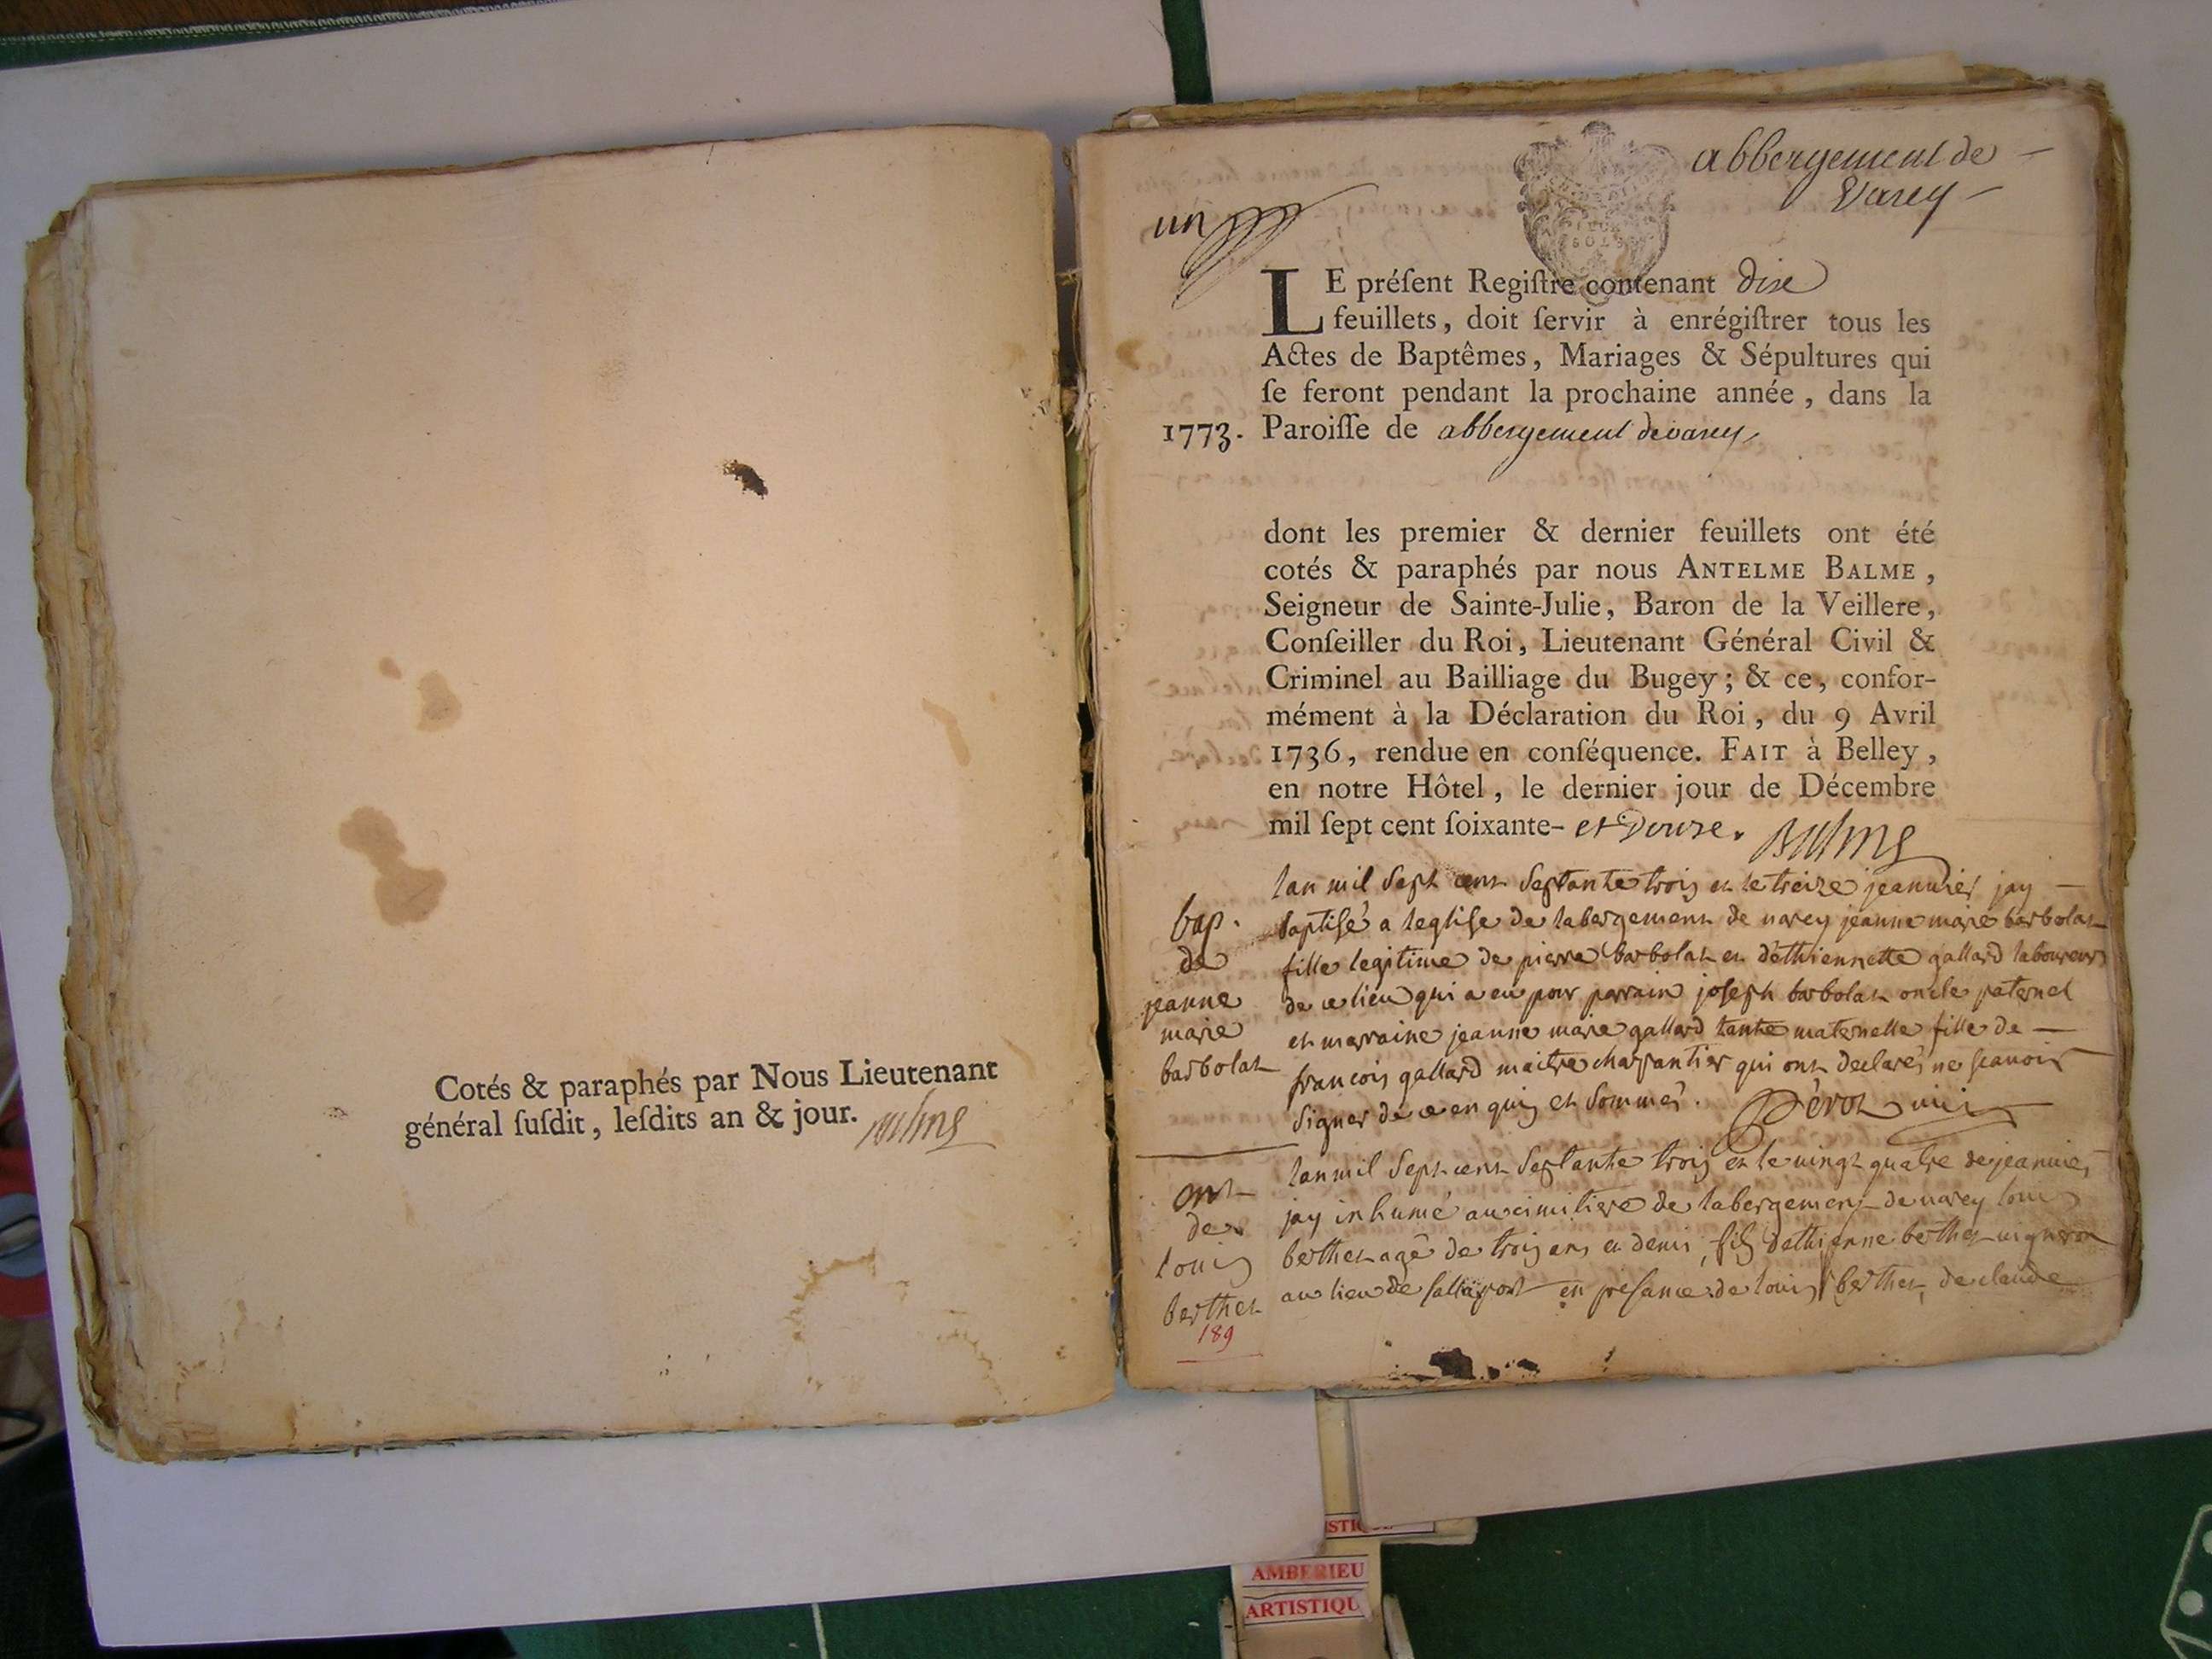 Cotés & paraphés par Nous Lieutenant
général ſuſdit, leſdits an & jour. Balme
abbergement de
Varey
un
LE préſent Regiſtre contenant dix
feuillets, doit ſervir à enrégiſtrer tous les
Actes de Baptêmes, Mariages & Sépultures qui
ſe feront pendant la prochaine année, dans la
1773. Paroiſſe de abbergement devarey
dont les premier & dernier feuillets ont été
cotés & paraphés par nous ANTELME BALME,
Seigneur de Sainte-Julie, Baron de la Veillere,
Conſeiller du Roi, Lieutenant Général Civil &
Criminel au Bailliage du Bugey; & ce, confor-
mément à la Déclaration du Roi, du 9 Avril
1736, rendue en conſéquence. FAIT à Belley,
en notre Hôtel, le dernier jour de Décembre
mil ſept cent ſoixante- et Douze. Balme
bap.
de
jeanne
marie
barbolat
lan mil sept cent septante trois et le treize jeanvier jay
baptisé a leglise de labergement de varey jeanne marie barbolat
fille legitime de pierre barbolat et dethiennette gallard laboureurs
de ce lieu qui a eu pour parrain joseph barbolat oncle paternel
et marraine jeanne marie gallard tante maternelle fille de
francois gallard maitre charpantier qui ont declarés ne scavoir
signer de ce enquis et sommés. Pérot
ent
de
louis
berthet
189
lan mil sept cent septante trois et le vingt quatre de jeanvier
jay inhumé au cimitiere de labergement de varey louis
berthet agé de trois ans et demi, fils dethienne berthet vigneron
au lieu de en presance de louis berthet, de claude